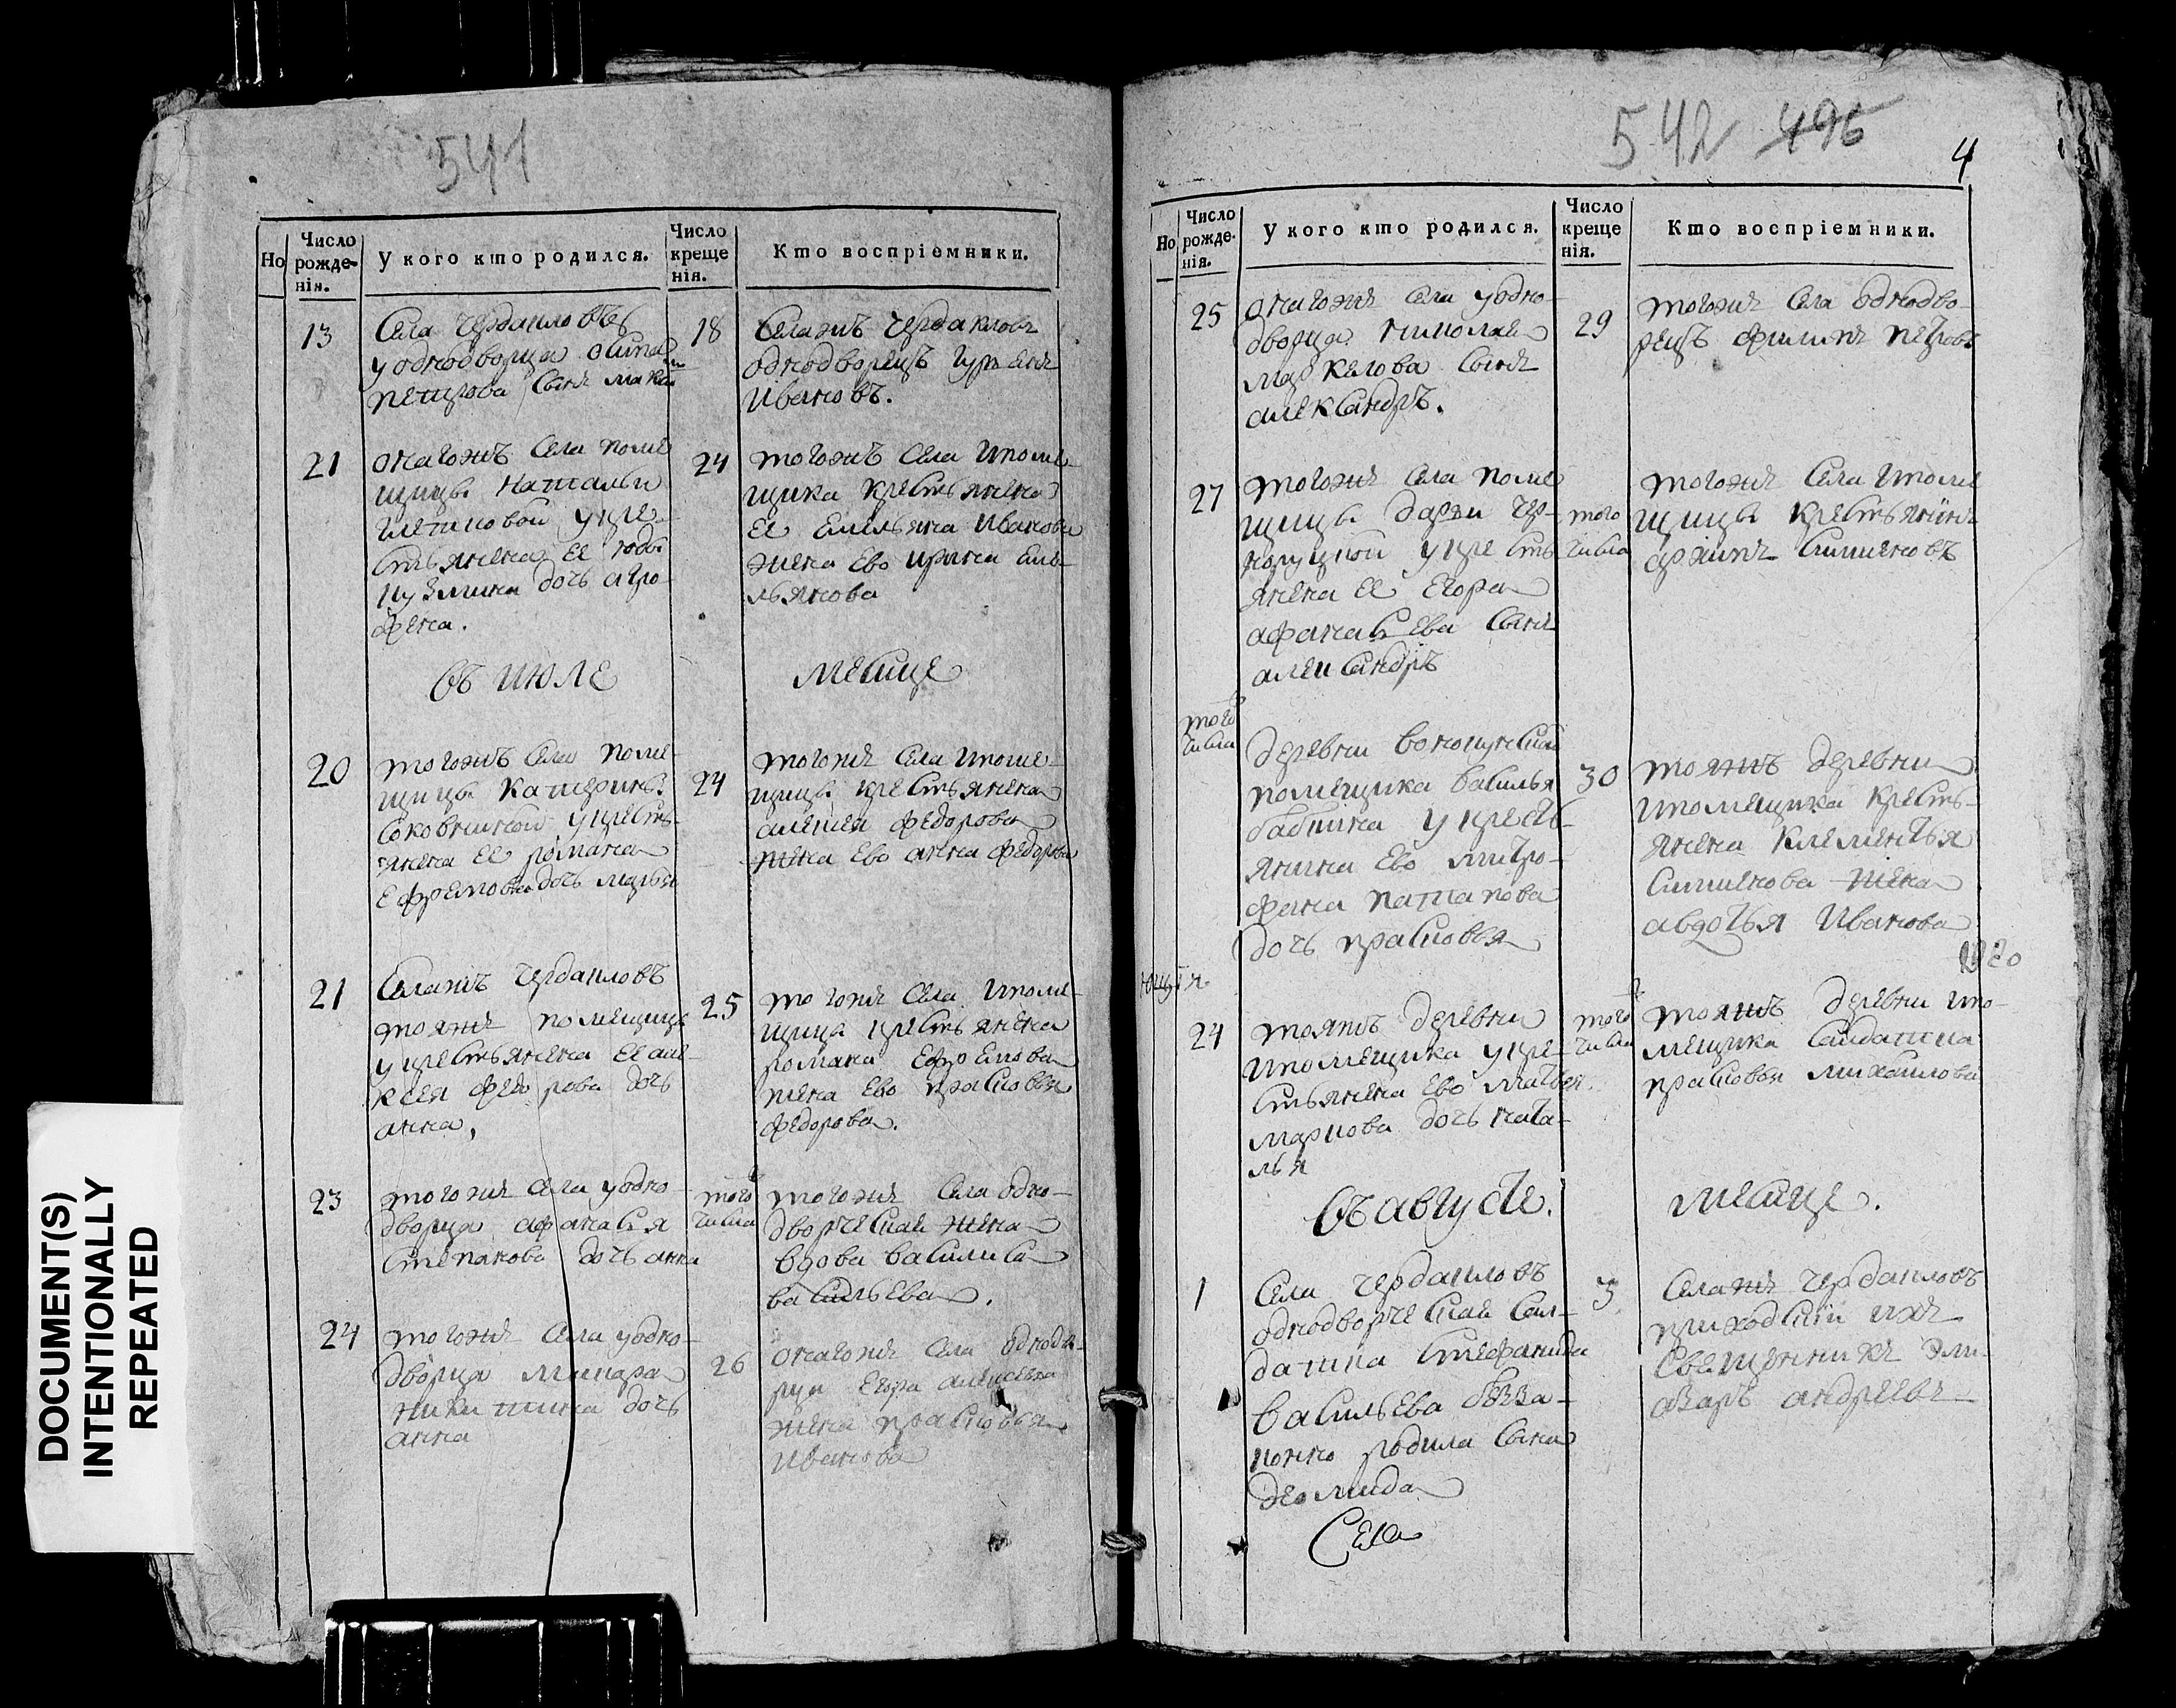 541
Но
Число рожде-нія.
У кого кто родился.
Число креще нія.
Кто воспріемники.
13
Села черданловъ
у однодворца осипа
петрова сынъ мака
18
Селажъ чердакловъ
однодворецъ гурьянъ
ивановъ.
21
онагожъ села поме
щицы натальи
у кре-
стьянина ее
кузмина дочь агро-
фена.
24
тогожъ села ипоме-
щика крестьянина
ее емельяна иванова
жена ево ирина еме-
льянова
въ июле
месице
20
тогожъ села поме-
щицы катерины
соковниной у кресть-
янина ее романа
ефремова дочь марья
24
тогожъ села ипоме-
щицы крестьянина
алексея федорова
жена ево анна федорова
21
Селажъ чердакловъ
тояжъ помещицы
у крестьянина ее але-
ксея федорова дочь
анна,
25
тогожъ села ипоме-
щицы крестьянина
романа ефремова
жена ево прасковья
федорова.
23
тогожъ села у одно-
дворца афанасья
степанова дочь анна
того числа
тогожъ села одно-
дворческая жена
вдова василиса
васильева.
24
тогожъ села у одно-
дворца макара
никитина дочь
анна
26
онагожъ села однодво-
рца егора алексеева
жена прасковья
иванова
542 496
4
Но
Число рожде-нія.
У кого кто родился.
Число креще нія.
Кто воспріемники.
25
онагожъ села у одно-
дворца николая
маркелова сынъ
александръ.
29
тогожъ села однодво-
рецъ филипъ петровъ
27
тогожъ села поме
щицы дарьи чер-
у кресть
янина ее егора
афанасьева сынъ
александръ
того числа
тогожъ села ипоме
щицы крестьянинъ
архипъ симионовъ
того числа
деревни
помещика василья
бабкина у кресть-
янина ево митро-
фана патапова
дочь прасковья
30
тояжъ деревни
ипомещика кресть-
янина клементья
симионова жена
авдотья иванова
24
тояжъ деревни
ипомещика у кре-
стьянина ево матвея
маркова дочь ната-
лья
того числа
тояжъ деревни ипо-
мещика салдатка
прасковья михаилова
въ августе.
месице.
1
Села чердакловъ
однодворческая сал-
датка стефанида
васильева безза-
конно родила сына
деомида
3
Селажъ чердакловъ
приходский ихъ
священникъ эли-
азаръ андреевъ
Села
DOCUMENT(S)
INTENTIONALLY
REPEATED